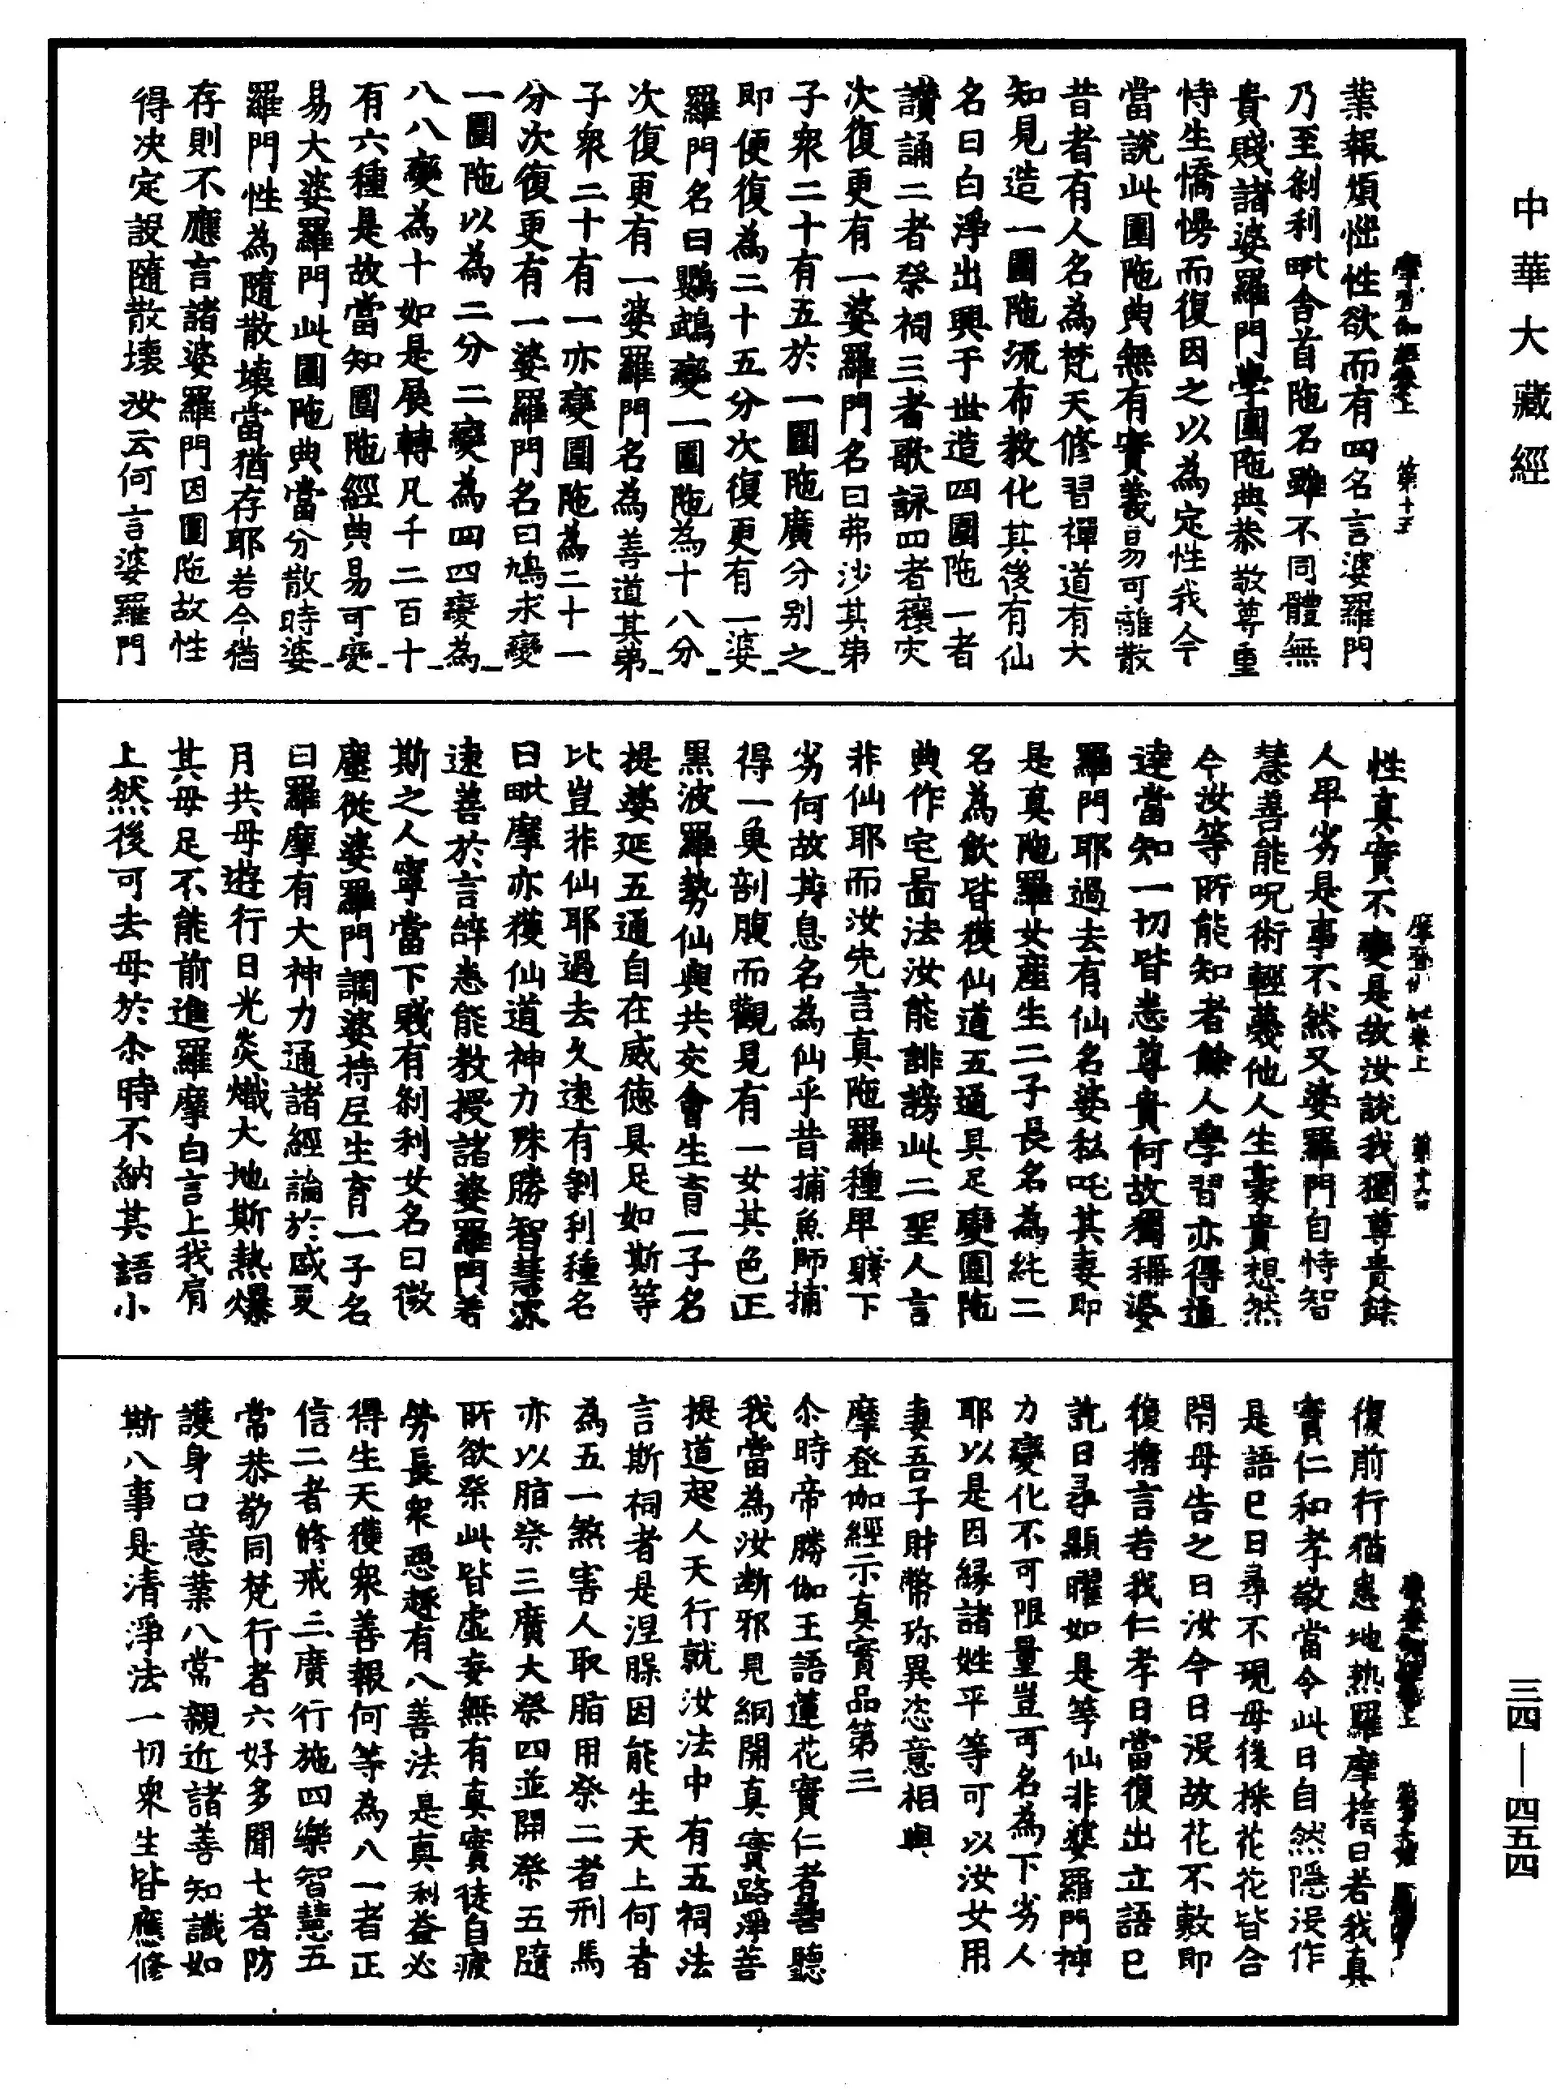 中華大藏經
業報煩惱性欲而有四名言婆羅門
乃至剎利毗舍首陁名雖不同體無
貴賤諸婆羅門學圍陁典恭敬尊重
恃生憍慢而復因之以為定性我今
當說此圍陁典無有實義易可離散
昔者有人名為梵天修習禪道有大
知見造一圍陁流布教化其後有仙
名曰白淨出興于世造四圍陁一者
讚誦二者祭祠三者歌詠四者穰灾
次復更有一婆羅門名曰弗沙其弟
子衆二十有五於一圍陁廣分別之
即便復為二十五分次復更有一婆
羅門名曰鸚鵡變一圍陁為十八分
次復更有一婆羅門名為善道其弟
子衆二十有一亦變圍陁為二十一
分次復更有一婆羅門名曰鳩求變
一圍陁以為二分二變為四四變為
八八變為十如是展轉凡千二百十
有六種是故當知圍陁經典易可變
易大婆羅門此圍陁典當分散時婆
羅門性為隨散壞當猶存耶若今猶
存則不應言諸婆羅門因圍陁故性
得决定設隨散壞汝云何言婆羅門
摩登伽經卷上 第十五
性真實不變是故汝說我獨尊貴餘
人卑劣是事不然又婆羅門自恃智
慧善能呪術輕蔑他人生豪貴想然
今汝等所能知者餘人學習亦得通
達當知一切皆悉尊貴何故獨稱婆
羅門耶過去有仙名婆私吒其妻即
是真陁羅女產生二子長名為純二
名為飲皆獲仙道五通具足變圍陁
典作宅啚法汝能誹謗此二聖人言
非仙耶而汝先言真陁羅種卑賤下
劣何故其息名為仙乎昔捕魚師捕
得一魚剖腹而觀見有一女其色正
黑波羅勢仙與共交會生育一子名
提婆延五通自在威德具足如斯等
比豈非仙耶過去久遠有剎利種名
曰毗摩亦獲仙道神力殊勝智慧深
遠善於言辭悉能教授諸婆羅門若
斯之人寧當下賤有剎利女名曰微
塵從婆羅門調婆持尼生育一子名
曰羅摩有大神力通諸經論於盛夏
月共母遊行日光炎熾大地斯熱爆
其母足不能前進羅摩白言上我肩
上然後可去母於尒時不納其語小
摩登伽經卷上 第十六
復前行猶患地熱羅摩捨曰若我真
實仁和孝敬當令此日自然隱沒作
是語已日尋不現母後採花花皆合
閇母告之曰汝令日沒故花不敷即
復擔言若我仁孝日當復出立語已
訖日尋顯曜如是等仙非婆羅門神
力變化不可限量豈可名為下劣人
耶以是因緣諸姓平等可以汝女用
妻吾子財幣珎異恣意相與
摩登伽經示真實品第三
尒時帝勝伽王語蓮花實仁者善聽
我當為汝斷邪見網開真實路淨菩
提道起人天行就汝法中有五祠法
言斯祠者是涅槃因能生天上何者
為五一煞害人取脂用祭二者刑馬
亦以脂祭三廣大祭四並開祭五隨
所欲祭此皆虛妄無有真實徒自疲
勞長衆惡趣有八善法是真利益必
得生天獲衆善報何等為八一者正
信二者修戒三廣行施四樂智慧五
常恭敬同梵行者六好多聞七者防
護身口意業八常親近諸善知識如
斯八事是清淨法一切衆生皆應修
三四—四五四